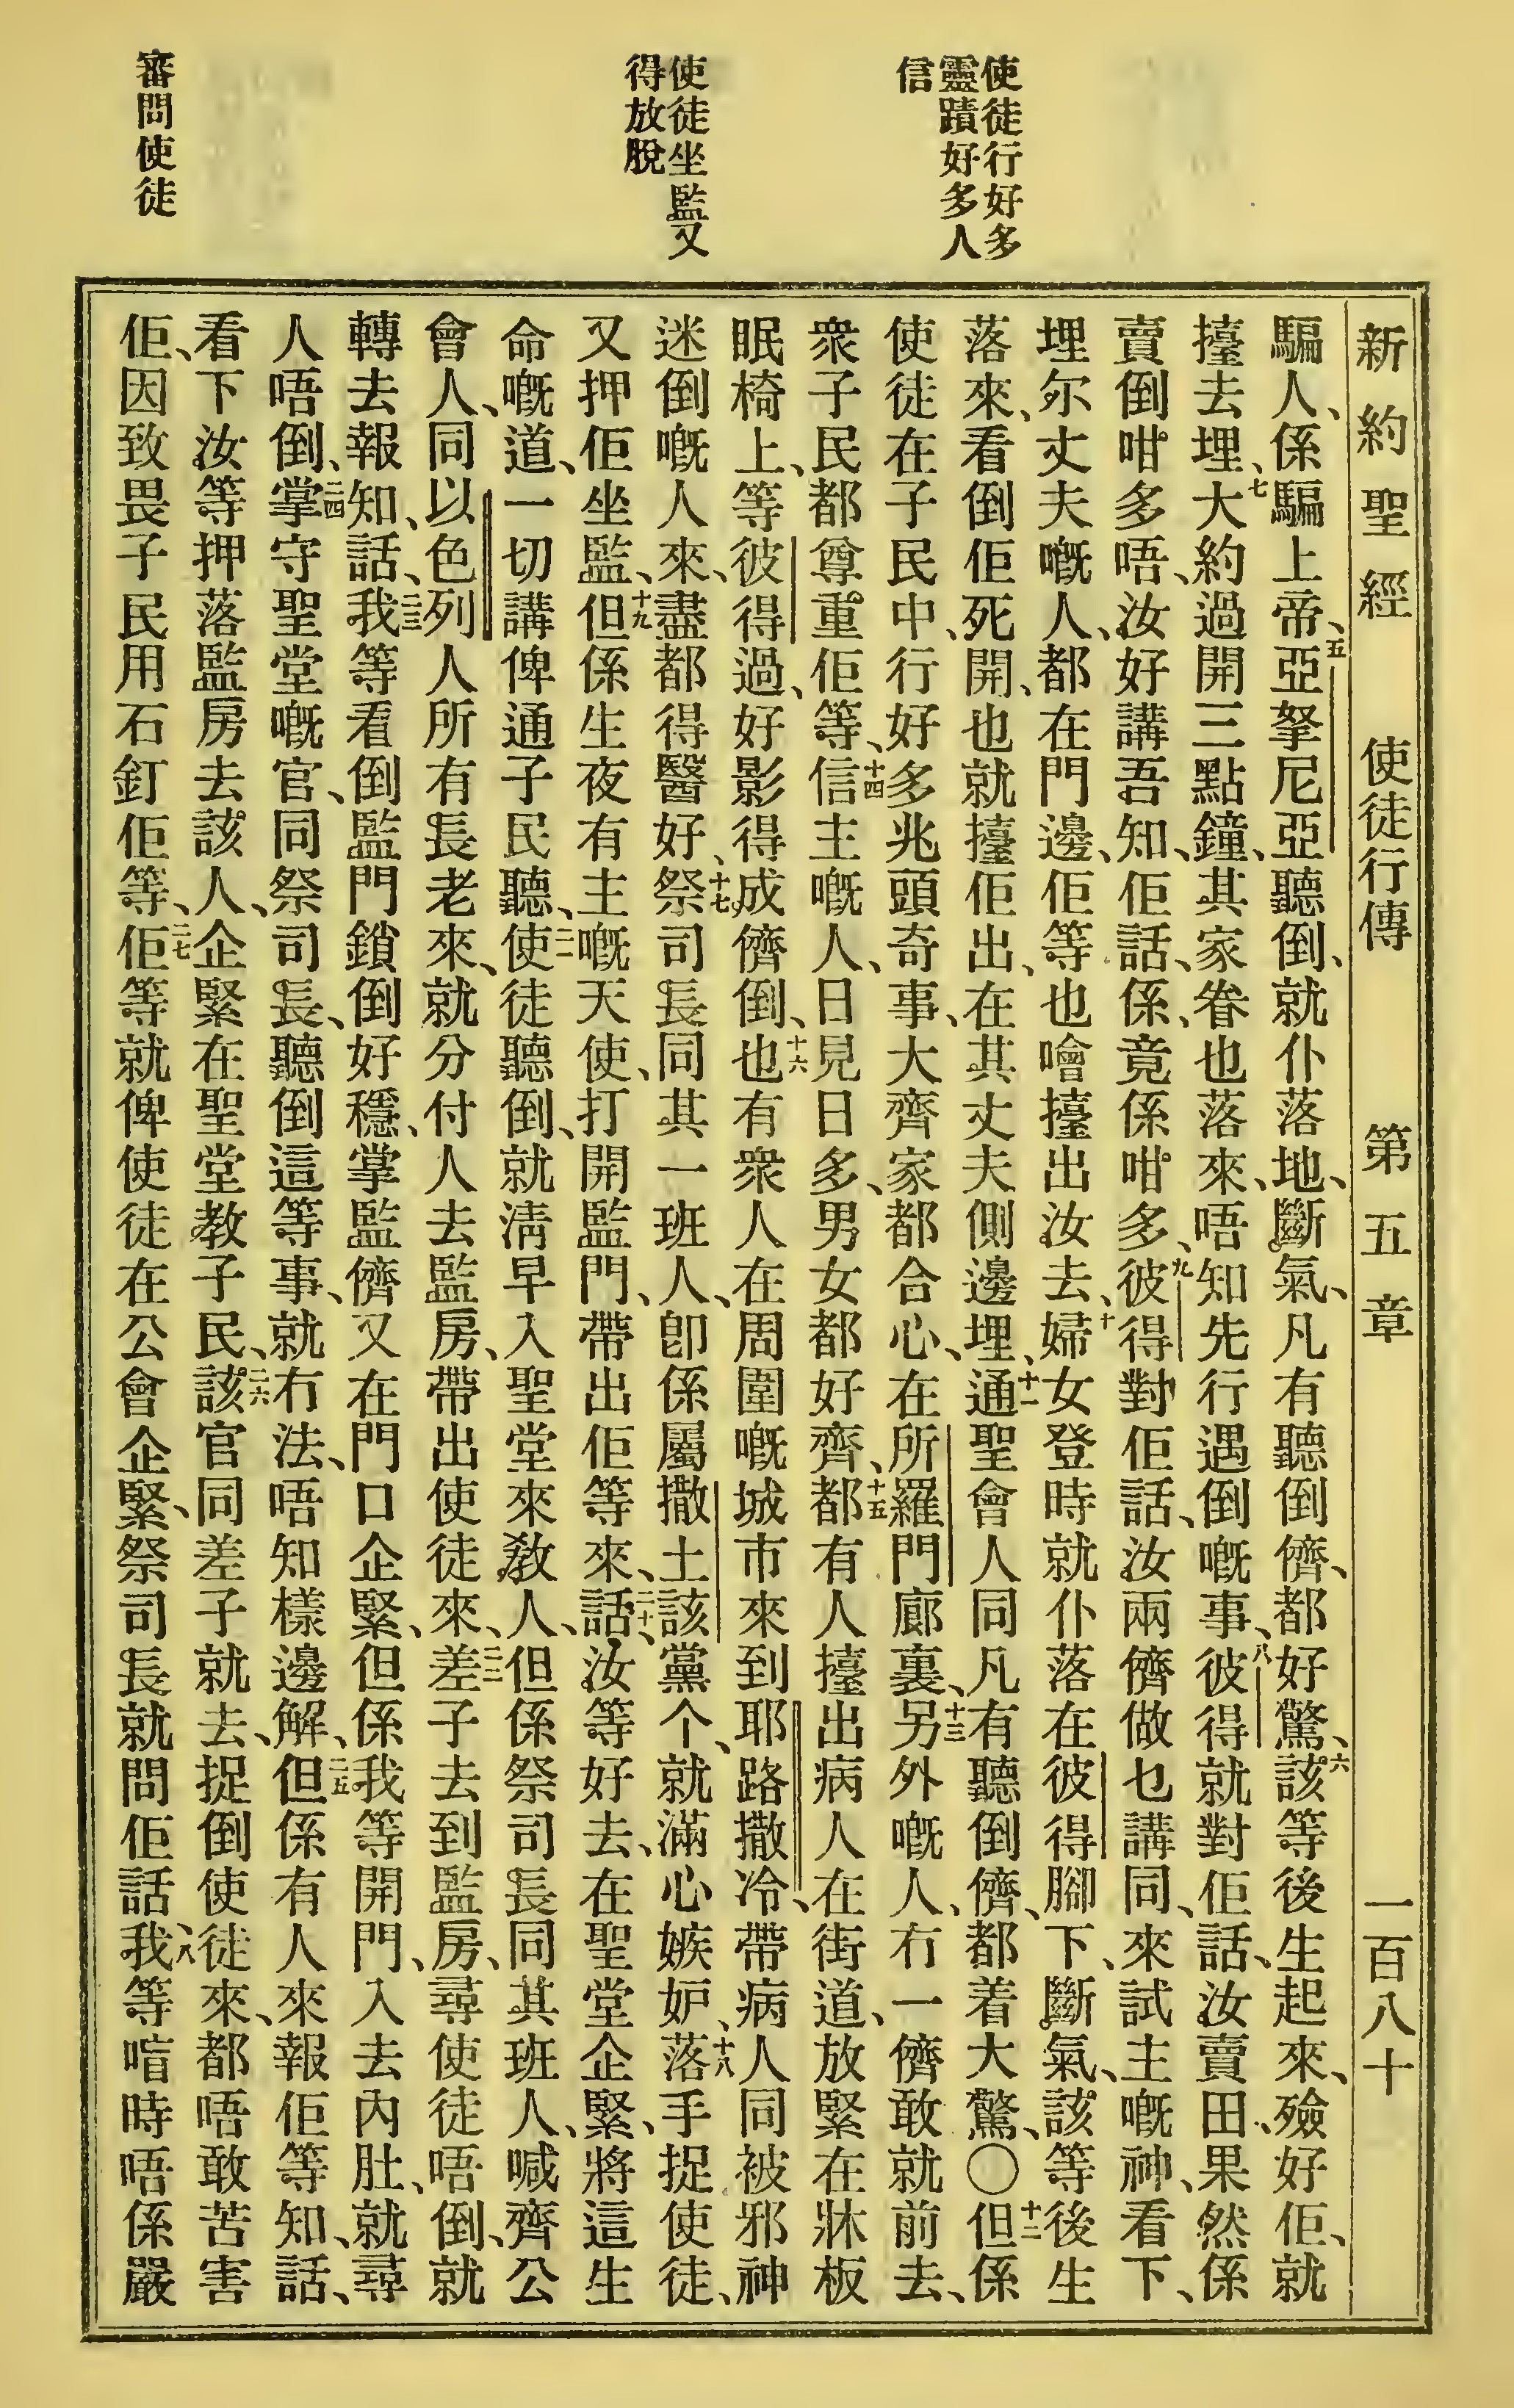 使徒行好多
靈蹟好多人
信
使徒坐監又
得放脫
審問使徒
新約聖經 使徒行傳 第五章 一百八十
騙人、係騙上帝、五亞拏尼亞聽倒、就仆落地、斷氣、凡有聽倒儕、都好驚、六該等後生起來、殮好佢、就
擡去埋、七大約過開三點鐘、其家眷也落來、唔知先行遇倒嘅事、八彼得就對佢話、汝賣田、果然係
賣倒咁多唔、汝好講吾知、佢話、係、竟係咁多、九彼得對佢話、汝兩儕做乜講同、來試主嘅神、看下、
埋尔丈夫嘅人、都在門邊、佢等也噲擡出汝去、十婦女登時就仆落在彼得腳下、斷氣、該等後生
落來、看倒佢死開、也就擡佢出、在其丈夫側邊埋、十一通聖會人同凡有聽倒儕、都着大驚、〇十二但係
使徒在子民中、行好多兆頭奇事、大齊家都合心、在所羅門廊裏、十三另外嘅人、冇一儕敢就前去、
衆子民都尊重佢等、十四信主嘅人、日見日多、男女都好齊、十五都有人擡出病人在街道、放緊在牀板
眠椅上、等彼得過、好影得成儕倒、十六也有衆人在周圍嘅城市來到耶路撒冷、帶病人同被邪神
迷倒嘅人來、盡都得醫好、十七祭司長同其一班人、卽係屬撒土該黨个、就滿心嫉妒、十八落手捉使徒、
又押佢坐監、十九但係生夜有主嘅天使、打開監門、帶出佢等來、二十話、汝等好去、在聖堂企緊、將這生
命嘅道、一切講俾通子民聽、二一使徒聽倒、就淸早入聖堂來教人、但係祭司長同其班人、喊齊公
會人、同以色列人所有長老來、就分付人去監房、帶出使徒來、二二差子去到監房、尋使徒唔倒、就
轉去報知、話、二三我等看倒監門鎖倒好穩、掌監儕又在門口企緊、但係我等開門、入去內肚、就尋
人唔倒、二四掌守聖堂嘅官、同祭司長、聽倒這等事、就冇法、唔知樣邊解、二五但係有人來報佢等知、話、
看下汝等押落監房去該人、企緊在聖堂教子民、二六該官同差子就去、捉倒使徒來、都唔敢苦害
佢、因致畏子民用石釘佢等、二七佢等就俾使徒在公會企緊、祭司長就問佢話、二八我等喧時唔係嚴